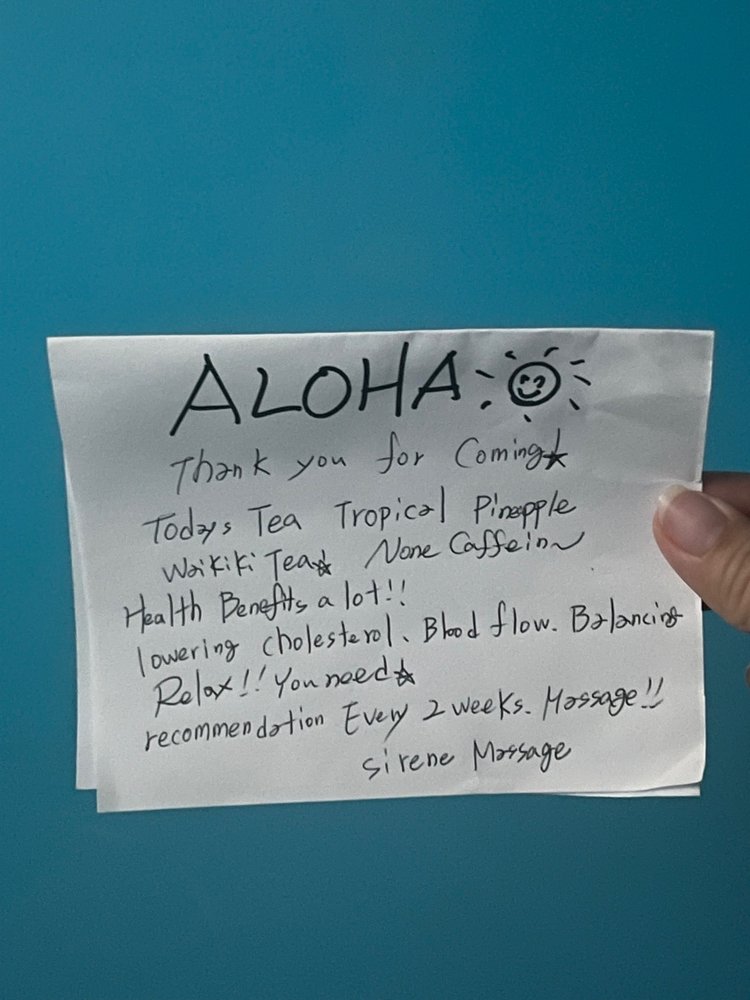 ALOHA
Thank you for Coming
Todays Tea Tropical Pineapple
Waikiki Tea None Caffein~
Health Benefits a lot!!
lowering cholesterol、Blood flow. Balancing
Relax!! You need
recommendation Every 2 weeks. Massage!!
Sirene Massage